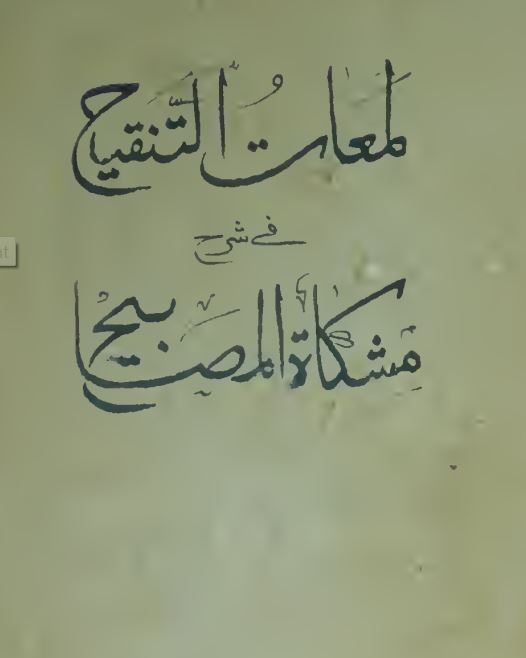 لمعات التنقيح
في شرح
مشكاة المصابيح